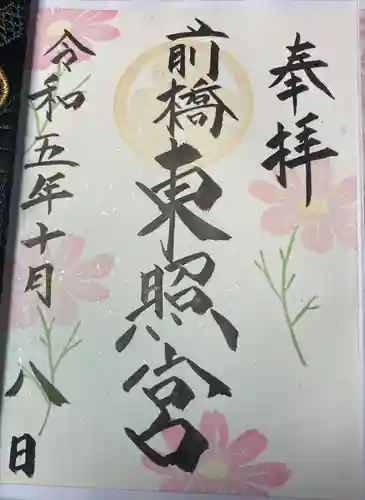 奉拝
前橋
東照宮
令和五年十月八日